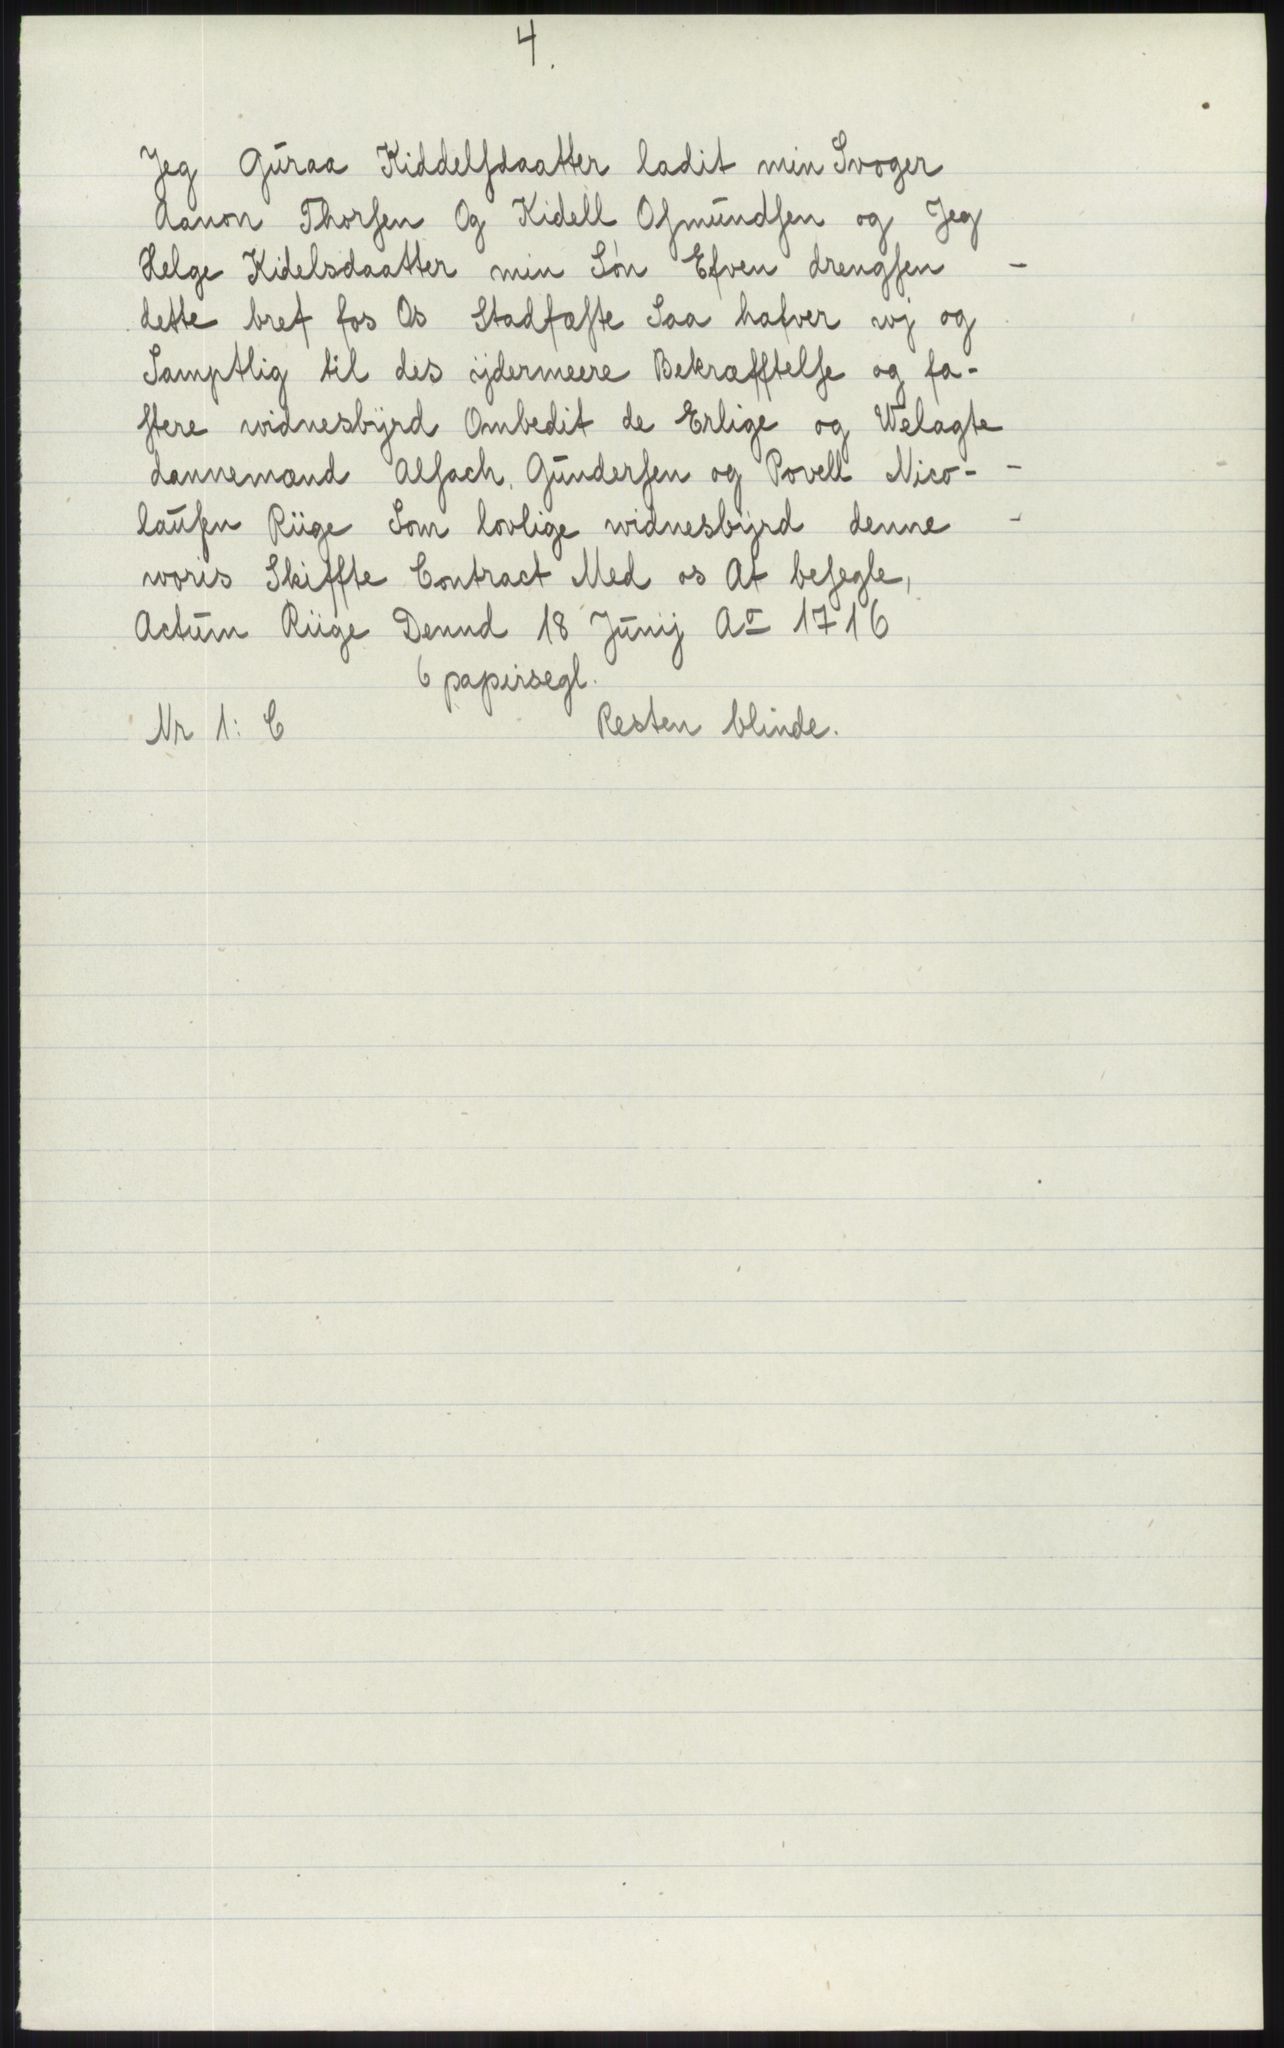 4.
Jeg Guraa Kiddelsdaatter ladit min Svoger
Aanon Thorsen Og Kidell Osmundsen og Jeg
Helge Kidelsdaatter min Søn Efven drengsen –
dette bref fos Os Stadfæste Saa hafver wj og
Samptlig til des ÿdermeere Bekræfftelse og fa-
stere widnesbÿrd Ombedit de Erlige og Welagte
dannemænd Alsach. Gundersen og Povell Nico- -
lausen Riige Som lovlige widnesbÿrd denne -
woris Skiffte Contract Med os At besegle,
Actum Riige Dennd 18 Junij Ao 1716
6 papirsegl.
Nr 1: C Resten blinde.